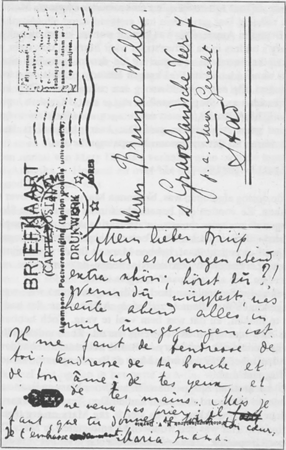 BRIEFKAART
(CARTE POSTALE)
Algemeene Postvereeniging (Union postale universelle)
DRUKWERK
ADRES
Herrn Bruno Wille
's Gravelandsche Veer 7
p. a. Mevr. Gerecht
Stad
Mein lieber
Mach es morgen abend
extra schön; hörst du?!
Wenn du wüsstest, was
heute abend alles in
mir umgegangen ist
Il me faut de tendresse de
toi; tendresse de ta bouche et
de ton âme; de tes yeux, et
de tes mains. Mais je
ne veux pas prier. Il
faut que tu donnes de ton cœur.
Je t'embrasse
Maria Inana.